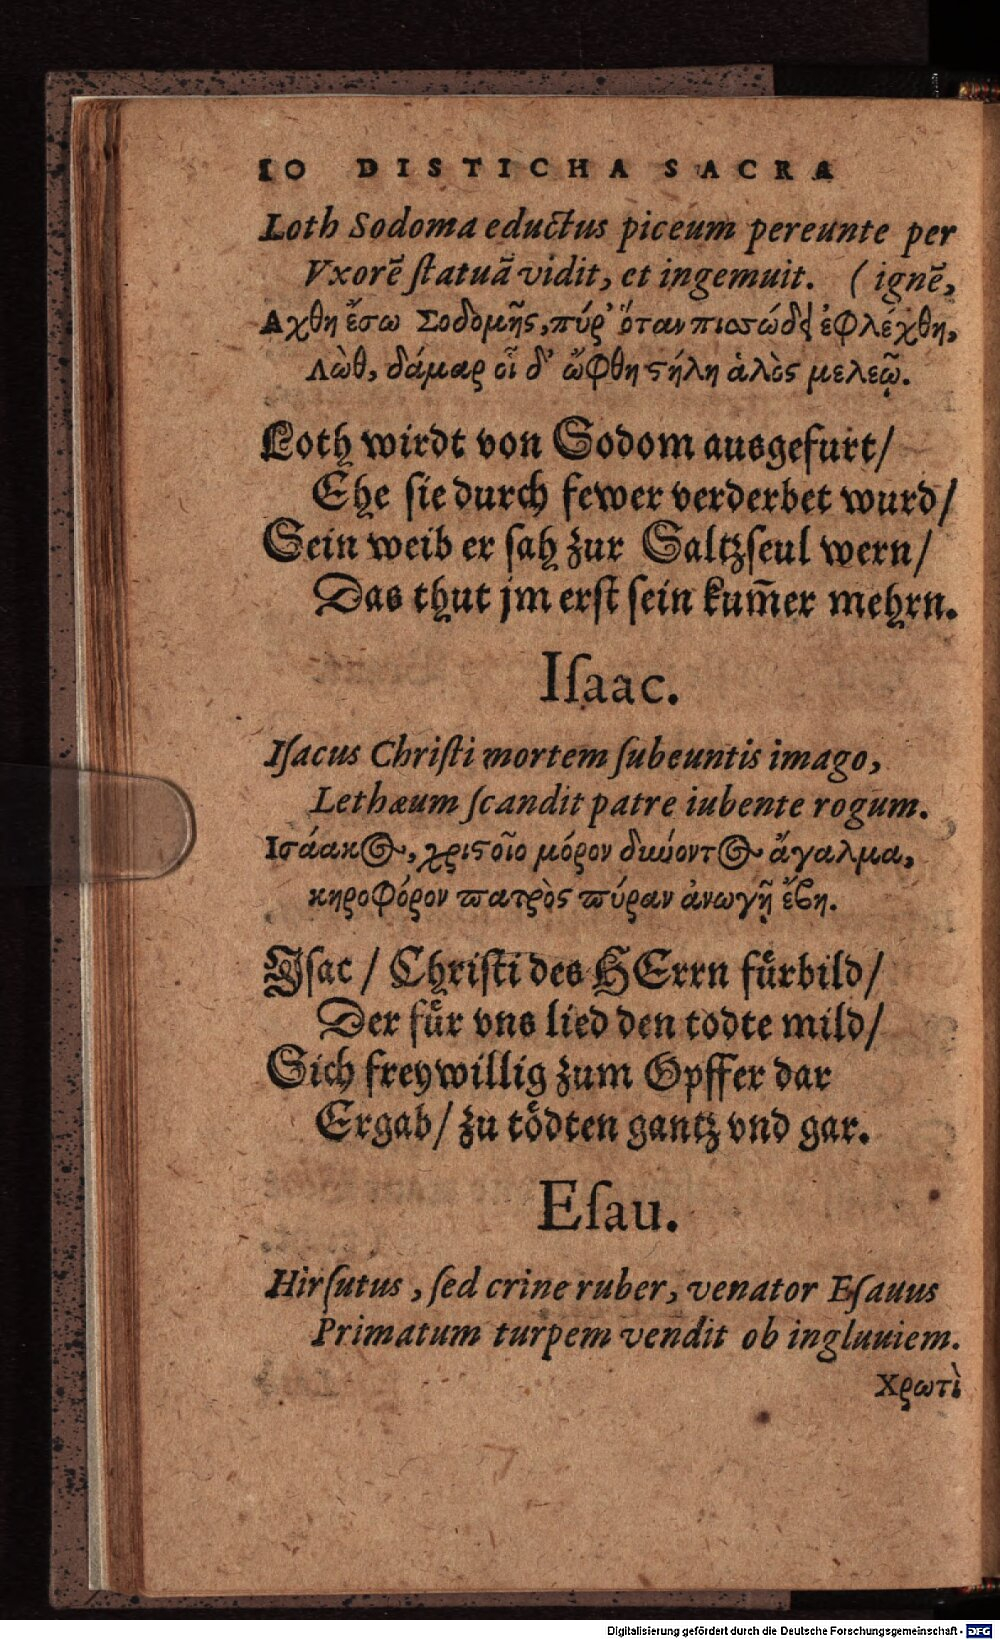 10 DISTICHA SACRA
Loth Sodoma eductus piceum pereunte per
Vxorẽ ſtatuã vidit, et ingemuit. ( ignẽ,
Αχθη ἔσω Σοδομῆς, πύρ' ὅταν πισσώδϊ ἐφλέχθη,
Λὼθ, δάμαρ οἷ δ' ὤφθη ϛήλη ἁλὸς μελεῷ.
Loth wirdt von Sodom ausgefurt/
Ehe sie durch fewer verderbet wurd/
Sein weib er ſah zur Saltzſeul wern/
Das thut jm erſt ſein kum̃er mehrn.
Iſaac.
Iſacus Chriſti mortem ſubeuntis imago,
Lethæum ſcandit patre iubente rogum.
Ισάακος, χριϛοῖο μόρον δύοντος ἄγαλμα,
κηροφόρον πατρὸς πύραν ἀνωγῇ ἔβη.
Iſac / Chriſti des HErrn fuͤrbild/
Der fuͤr vns lied den todte mild/
Sich freywillig zum Opffer dar
Ergab/ zu toͤdten gantz vnd gar.
Eſau.
Hirſutus, ſed crine ruber, venator Eſauus
Primatum turpem vendit ob ingluuiem.
Χρωτὶ
Digitalisierung gefördert durch die Deutsche Forschungsgemeinschaft - DFG